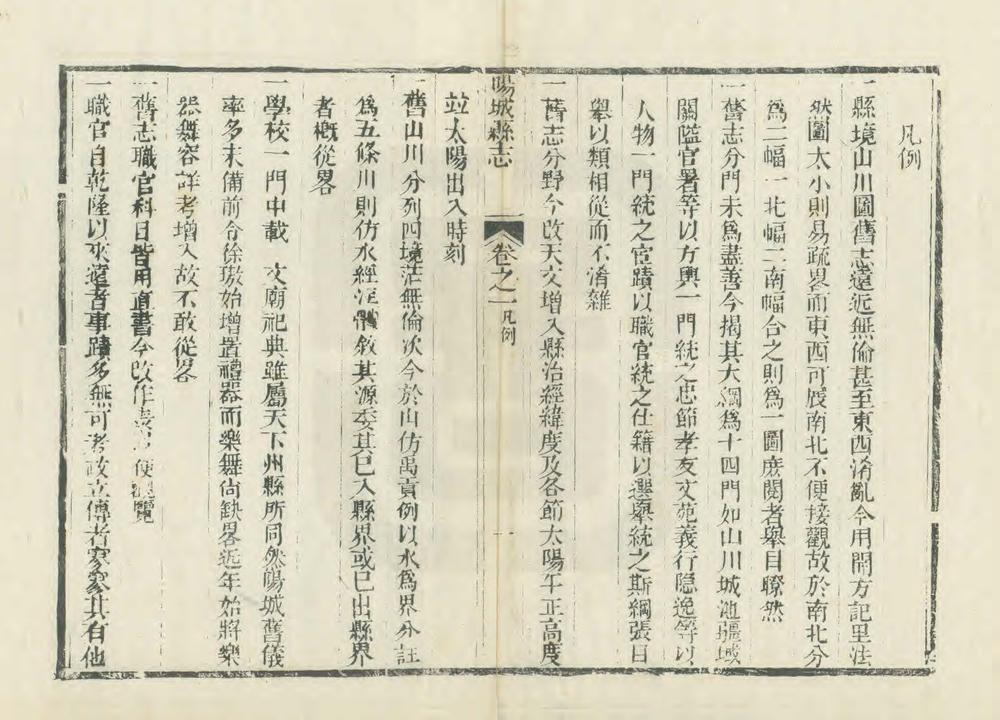 凡例
一縣境山川圖舊志遠近無倫甚至東西淆亂今用開方記里法
然圖太小則易疏畧而東西可展南北不便接觀故於南北分
爲二幅一北幅二南幅合之則爲一圖庶閱者舉目瞭然
一舊志分門未爲盡善今揭其大綱爲十四門如山川城池疆域
關隘官署等以方輿一門統之忠節孝友文苑義行隐逸等以
人物一門統之宦蹟以職官統之仕籍以選舉統之斯綱張目
舉以類相從而不淆雜
一舊志分野今改天文增入縣治經緯度及各節太陽午正高度
並太陽出入時刻
陽城縣志
卷之一 凡例
一
一舊山川分列四境茫無倫次今於山仿禹貢例以水爲界分註
爲五條川則仿水經注體敘其源委其已入縣界或已出縣界
者概從畧
一學校一門中載 文廟祀典雖屬天下州縣所同然陽城舊儀
率多未備前令徐璈始增置禮器而樂舞尚缺畧近年始將樂
器舞容詳考增入故不敢從畧
一舊志職官科目皆用直書今改作表以便觀覽
一職官自乾隆以來遠者事蹟多無可考故立傳者寥寥其有他